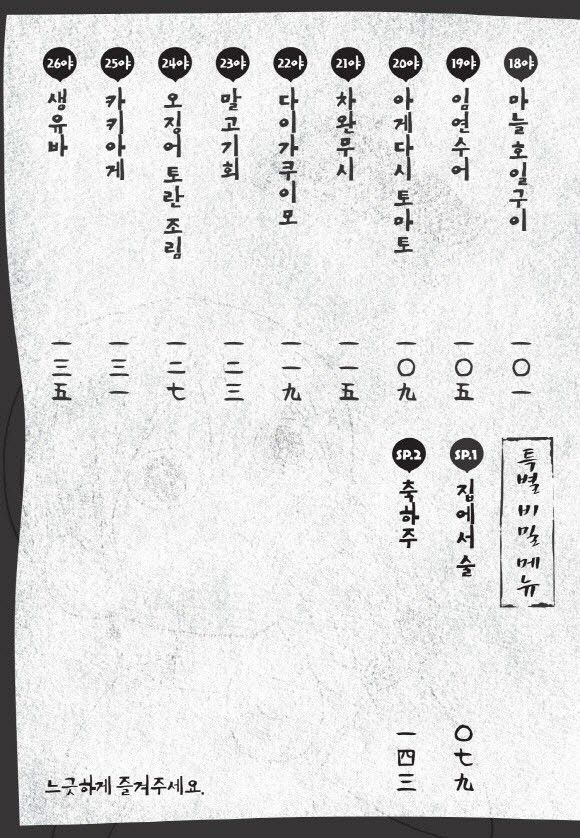 18야 마늘 호일구이 一〇一
19야 임연수어 一〇五
20야 아게다시 토마토 一〇九
21야 차완무시 一一五
22야 다이가쿠이모 一一九
23야 말고기회 一二三
24야 오징어 토란 조림 一二七
25야 카키아게 一三一
26야 생유바 一三五
특별 비밀 메뉴
SP.1 집에서 술 〇七九
SP.2 축하주 一四三
느긋하게 즐겨주세요.